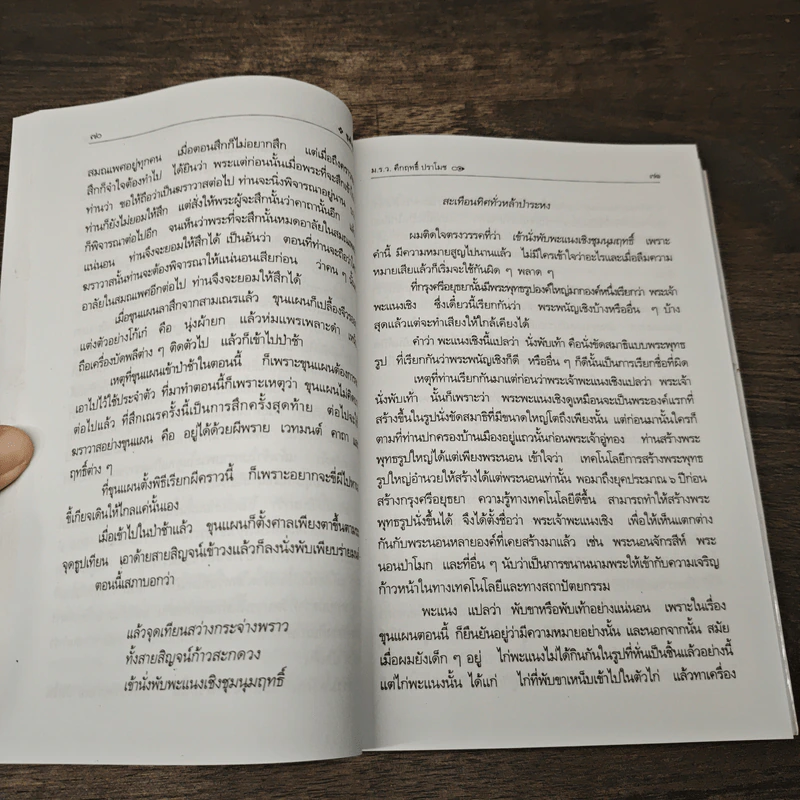 ๗๐
สมณเพศอยู่ทุกคน เมื่อตอนสึกก็ไม่อยากสึก แต่เมื่อถึงครา
สึกก็จำใจต้องทำไป ได้ยินว่า พระแต่ก่อนนั้นเมื่อพระที่จะสึกเข้าไป
ท่านว่า ขอให้ถือว่าเป็นฆราวาสต่อไป ท่านจะนิ่งพิจารณาอยู่นาน
ท่านก็ยังไม่ยอมให้สึก แต่สั่งให้พระผู้จะสึกนั้นว่าคาถานั้นอีก
ก็พิจารณาต่อไปอีก จนเห็นว่าพระที่จะสึกนั้นหมดอาลัยในสมณเพศ
แน่นอน ท่านจึงจะยอมให้สึกได้ เป็นอันว่า ตอนที่ท่านจะถือว่าเป็น
ฆราวาสนั้นท่านจะต้องพิจารณาให้แน่นอนเสียก่อน ว่าคน ๆ นั้น
อาลัยในสมณเพศอีกต่อไป ท่านจึงจะยอมให้สึกได้
เมื่อขุนแผนลาสึกจากสามเณรแล้ว ขุนแผนก็เปลื้องจีวรออก
แต่งตัวอย่างโก้เก๋ คือ นุ่งผ้ายก แล้วห่มแพรเพลาะดำ
ถือเครื่องบัดพลีต่าง ๆ ติดตัวไป แล้วก็เข้าไปป่าช้า
เหตุที่ขุนแผนเข้าป่าช้าในตอนนี้ ก็เพราะขุนแผนต้องการ
เอาไปไว้ใช้ประจำตัว ที่มาทำตอนนี้ก็เพราะเหตุว่า ขุนแผนไม่คิด
ต่อไปแล้ว ที่สึกเณรครั้งนี้เป็นการสึกครั้งสุดท้าย ต่อไปจะ
ฆราวาสอย่างขุนแผน คือ อยู่ได้ด้วยผีพราย เวทมนต์ คาถา
ฤทธิ์ต่าง ๆ
ที่ขุนแผนตั้งพิธีเรียกผีคราวนี้ ก็เพราะอยากจะขี่ผีไปหา
ขี้เกียจเดินให้ไกลแค่นั้นเอง
เมื่อเข้าไปในป่าช้าแล้ว ขุนแผนก็ตั้งศาลเพียงตาขึ้นตาม
จุดธูปเทียน เอาด้ายสายสิญจน์เข้าวงแล้วก็ลงนั่งพับเพียบร่ายมนต์
ตอนนี้เสภาบอกว่า
แล้วจุดเทียนสว่างกระจ่างพราว
ทั้งสายสิญจน์ก้าวสะกดวง
เข้านั่งพับพะแนงเชิงชุมนุมฤทธิ์
ม.ร.ว. คึกฤทธิ์ ปราโมช
๗๑
สะเทือนทิศทั่วหล้าป่าระหง
ผมติดใจตรงวรรคที่ว่า เข้านั่งพับพะแนงเชิงชุมนุมฤทธิ์ เพราะ
คำนี้ มีความหมายสูญไปนานแล้ว ไม่มีใครเข้าใจว่าอะไรและเมื่อลืมความ
หมายเสียแล้วก็เริ่มจะใช้กันผิด ๆ พลาด ๆ
ที่กรุงศรีอยุธยานั้นมีพระพุทธรูปองค์ใหญ่มากองค์หนึ่งเรียกว่า พระเจ้า
พะแนงเชิง ซึ่งเดี๋ยวนี้เรียกกันว่า พระพนัญเชิงบ้างหรืออื่น ๆ บ้าง
สุดแล้วแต่จะทำเสียงให้ใกล้เคียงได้
คำว่า พะแนงเชิงนี้แปลว่า นั่งพับเท้า คือนั่งขัดสมาธิแบบพระพุทธ
รูป ที่เรียกกันว่าพระพนัญเชิงก็ดี หรืออื่น ๆ ก็ดีนั้นเป็นการเรียกชื่อที่ผิด
เหตุที่ท่านเรียกกันมาแต่ก่อนว่าพระเจ้าพะแนงเชิงแปลว่า พระเจ้า
นั่งพับเท้า นั้นก็เพราะว่า พระพะแนงเชิงดูเหมือนจะเป็นพระองค์แรกที่
สร้างขึ้นในรูปนั่งขัดสมาธิที่มีขนาดใหญ่โตถึงเพียงนั้น แต่ก่อนมานั้นใครก็
ตามที่ท่านปกครองบ้านเมืองอยู่แถวนั้นก่อนพระเจ้าอู่ทอง ท่านสร้างพระ
พุทธรูปใหญ่ได้แต่เพียงพระนอน เข้าใจว่า เทคโนโลยีการสร้างพระพุทธ
รูปใหญ่อำนวยให้สร้างได้แต่พระนอนเท่านั้น พอมาถึงยุคประมาณ ๖ ปีก่อน
สร้างกรุงศรีอยุธยา ความรู้ทางเทคโนโลยีดีขึ้น สามารถทำให้สร้างพระ
พุทธรูปนั่งขึ้นได้ จึงได้ตั้งชื่อว่า พระเจ้าพะแนงเชิง เพื่อให้เห็นแตกต่าง
กันกับพระนอนหลายองค์ที่เคยสร้างมาแล้ว เช่น พระนอนจักรสีห์ พระ
นอนป่าโมก และที่อื่น ๆ นับว่าเป็นการขนานนามพระให้เข้ากับความเจริญ
ก้าวหน้าในทางเทคโนโลยีและทางสถาปัตยกรรม
พะแนง แปลว่า พับขาหรือพับเท้าอย่างแน่นอน เพราะในเรื่อง
ขุนแผนตอนนี้ ก็ยืนยันอยู่ว่ามีความหมายอย่างนั้น และนอกจากนั้น สมัย
เมื่อผมยังเด็ก ๆ อยู่ ไก่พะแนงไม่ได้กินกันในรูปที่หั่นเป็นชิ้นแล้วอย่างนี้
แต่ไก่พะแนงนั้น ได้แก่ ไก่ที่พับขาเหน็บเข้าไปในตัวไก่ แล้วทาเครื่อง